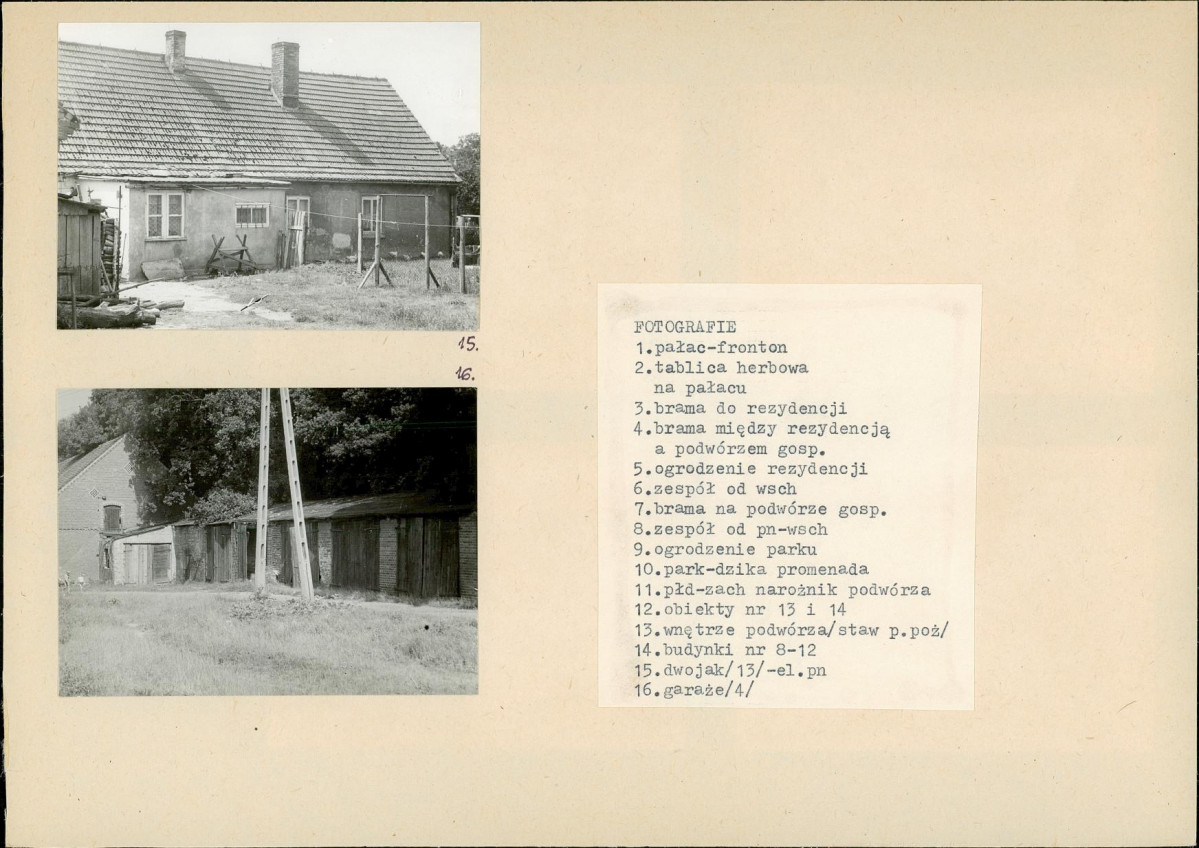 15.
16.
FOTOGRAFIE
1.pałac-fronton
2.tablica herbowa
na pałacu
3.brama do rezydencji
4.brama między rezydencją
a podwórzem gosp.
5.ogrodzenie rezydencji
6.zespół od wsch
7.brama na podwórze gosp.
8.zespół od pn-wsch
9.ogrodzenie parku
10.park-dzika promenada
11.płd-zach narożnik podwórza
12.obiekty nr 13 i 14
13.wnętrze podwórza/staw p.poż/
14.budynki nr 8-12
15.dwojak/13/-el.pn
16.garaże/4/